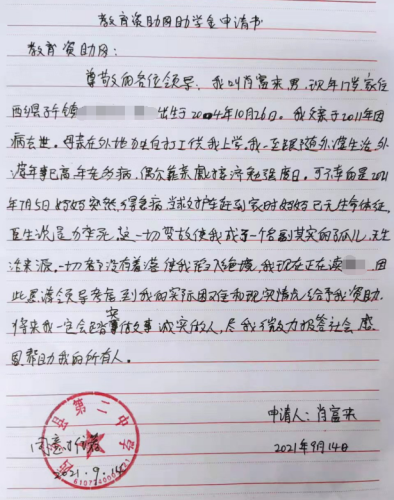 教育资助网助学金申请书
教育资助网:
尊敬的各位领导: 我叫肖富来,男,现年17岁,家住
西 县 镇 出生于2004年10月26日。我父亲于2011年因
病去世。母亲在外地为生 打工供我上学,我一直跟随外婆生活,外
婆年事已高,年老多病,偶尔靠亲戚接济勉强度日。可不幸的是2021
年7月5日妈妈突然得急病,当救护车赶到家时妈妈已无生命体征,
医生说是为猝死,这一切变故使我成了一个名副其实的孤儿,无生
活来源,一切都没有着落使我陷入绝境,我现在正在读 因
此恳请领导考虑到我的实际困难和现实情况给予我资助,
将来我一定会踏实做事 诚实做人,尽我微薄力报答社会 感
恩帮助我的所有人。
申请人: 肖富来
2021年9月14日
县第二中学
同意
2021.9.14